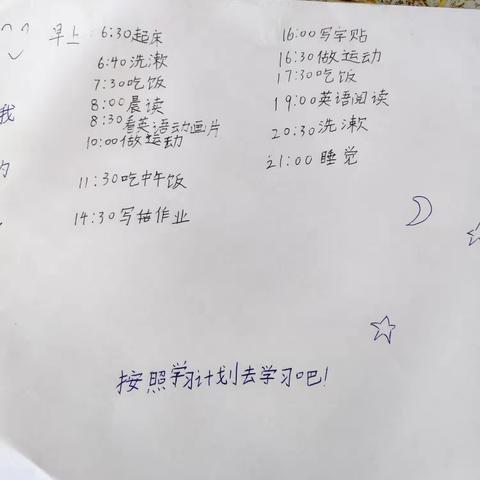 早上:6:30起床
6:40洗漱
7:30吃饭
8:00晨读
8:30看英语动画片
10:00做运动
11:30吃中午饭
14:30写作业
16:00写字帖
16:30做运动
17:30吃饭
19:00英语阅读
20:30洗漱
21:00睡觉
我
的
按照学习计划去学习吧!